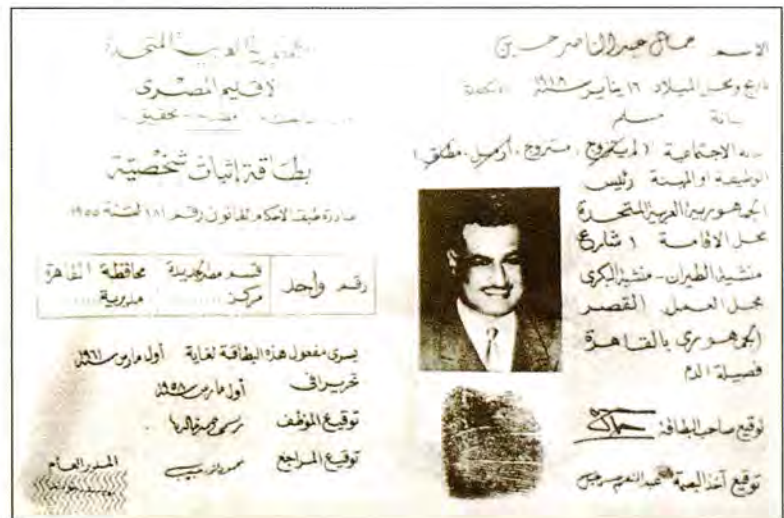 الاسم جمال عبد الناصر حسين
تاريخ ومحل الميلاد ١٦ يناير سنة ١٩١٨
مسلم
الاجتماعية (لم يتزوج، متزوج، أرمل، مطلق)
الوظيفة او المهنة رئيس
الجمهورية العربية المتحدة
محل الاقامة ١ شارع
منشية الطيران - منشية البكري
محل العمل القصر
الجمهوري بالقاهرة
فصيلة الدم
توقيع صاحب البطاقة
توقيع آخذ البصمة عبد المنعم
العربية المتحدة
الاقليم المصرى
تحقيق
بطاقة إثبات شخصية
صادرة طبقا لأحكام القانون رقم ١٨١ لسنة ١٩٥٥
رقم واحد
قسم مصر الجديدة محافظة القاهرة
مركز ....... مديرية .......
يسرى مفعول هذه البطاقة لغاية أول مارس ١٩٦١
تحريرا فى أول مارس ١٩٥٨
توقيع الموظف
توقيع المراجع
المدير العام